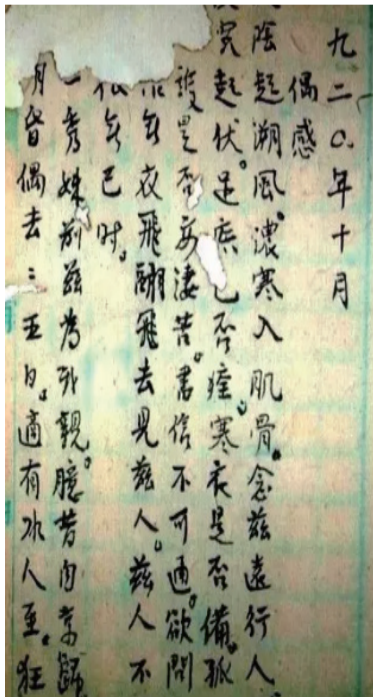 九二〇年十月
偶感
陰起溯風。濃寒入肌骨。念茲遠行人
突起伏。足疾已否痊。寒衣是否備。孤
護是否亦淒苦。書信不可通。欲問
無衣飛翮飛去見茲人。茲人不
無已時。
一 妹前茲為我親。臆昔自京歸
月督偶去 五日。適有冰人至。狂